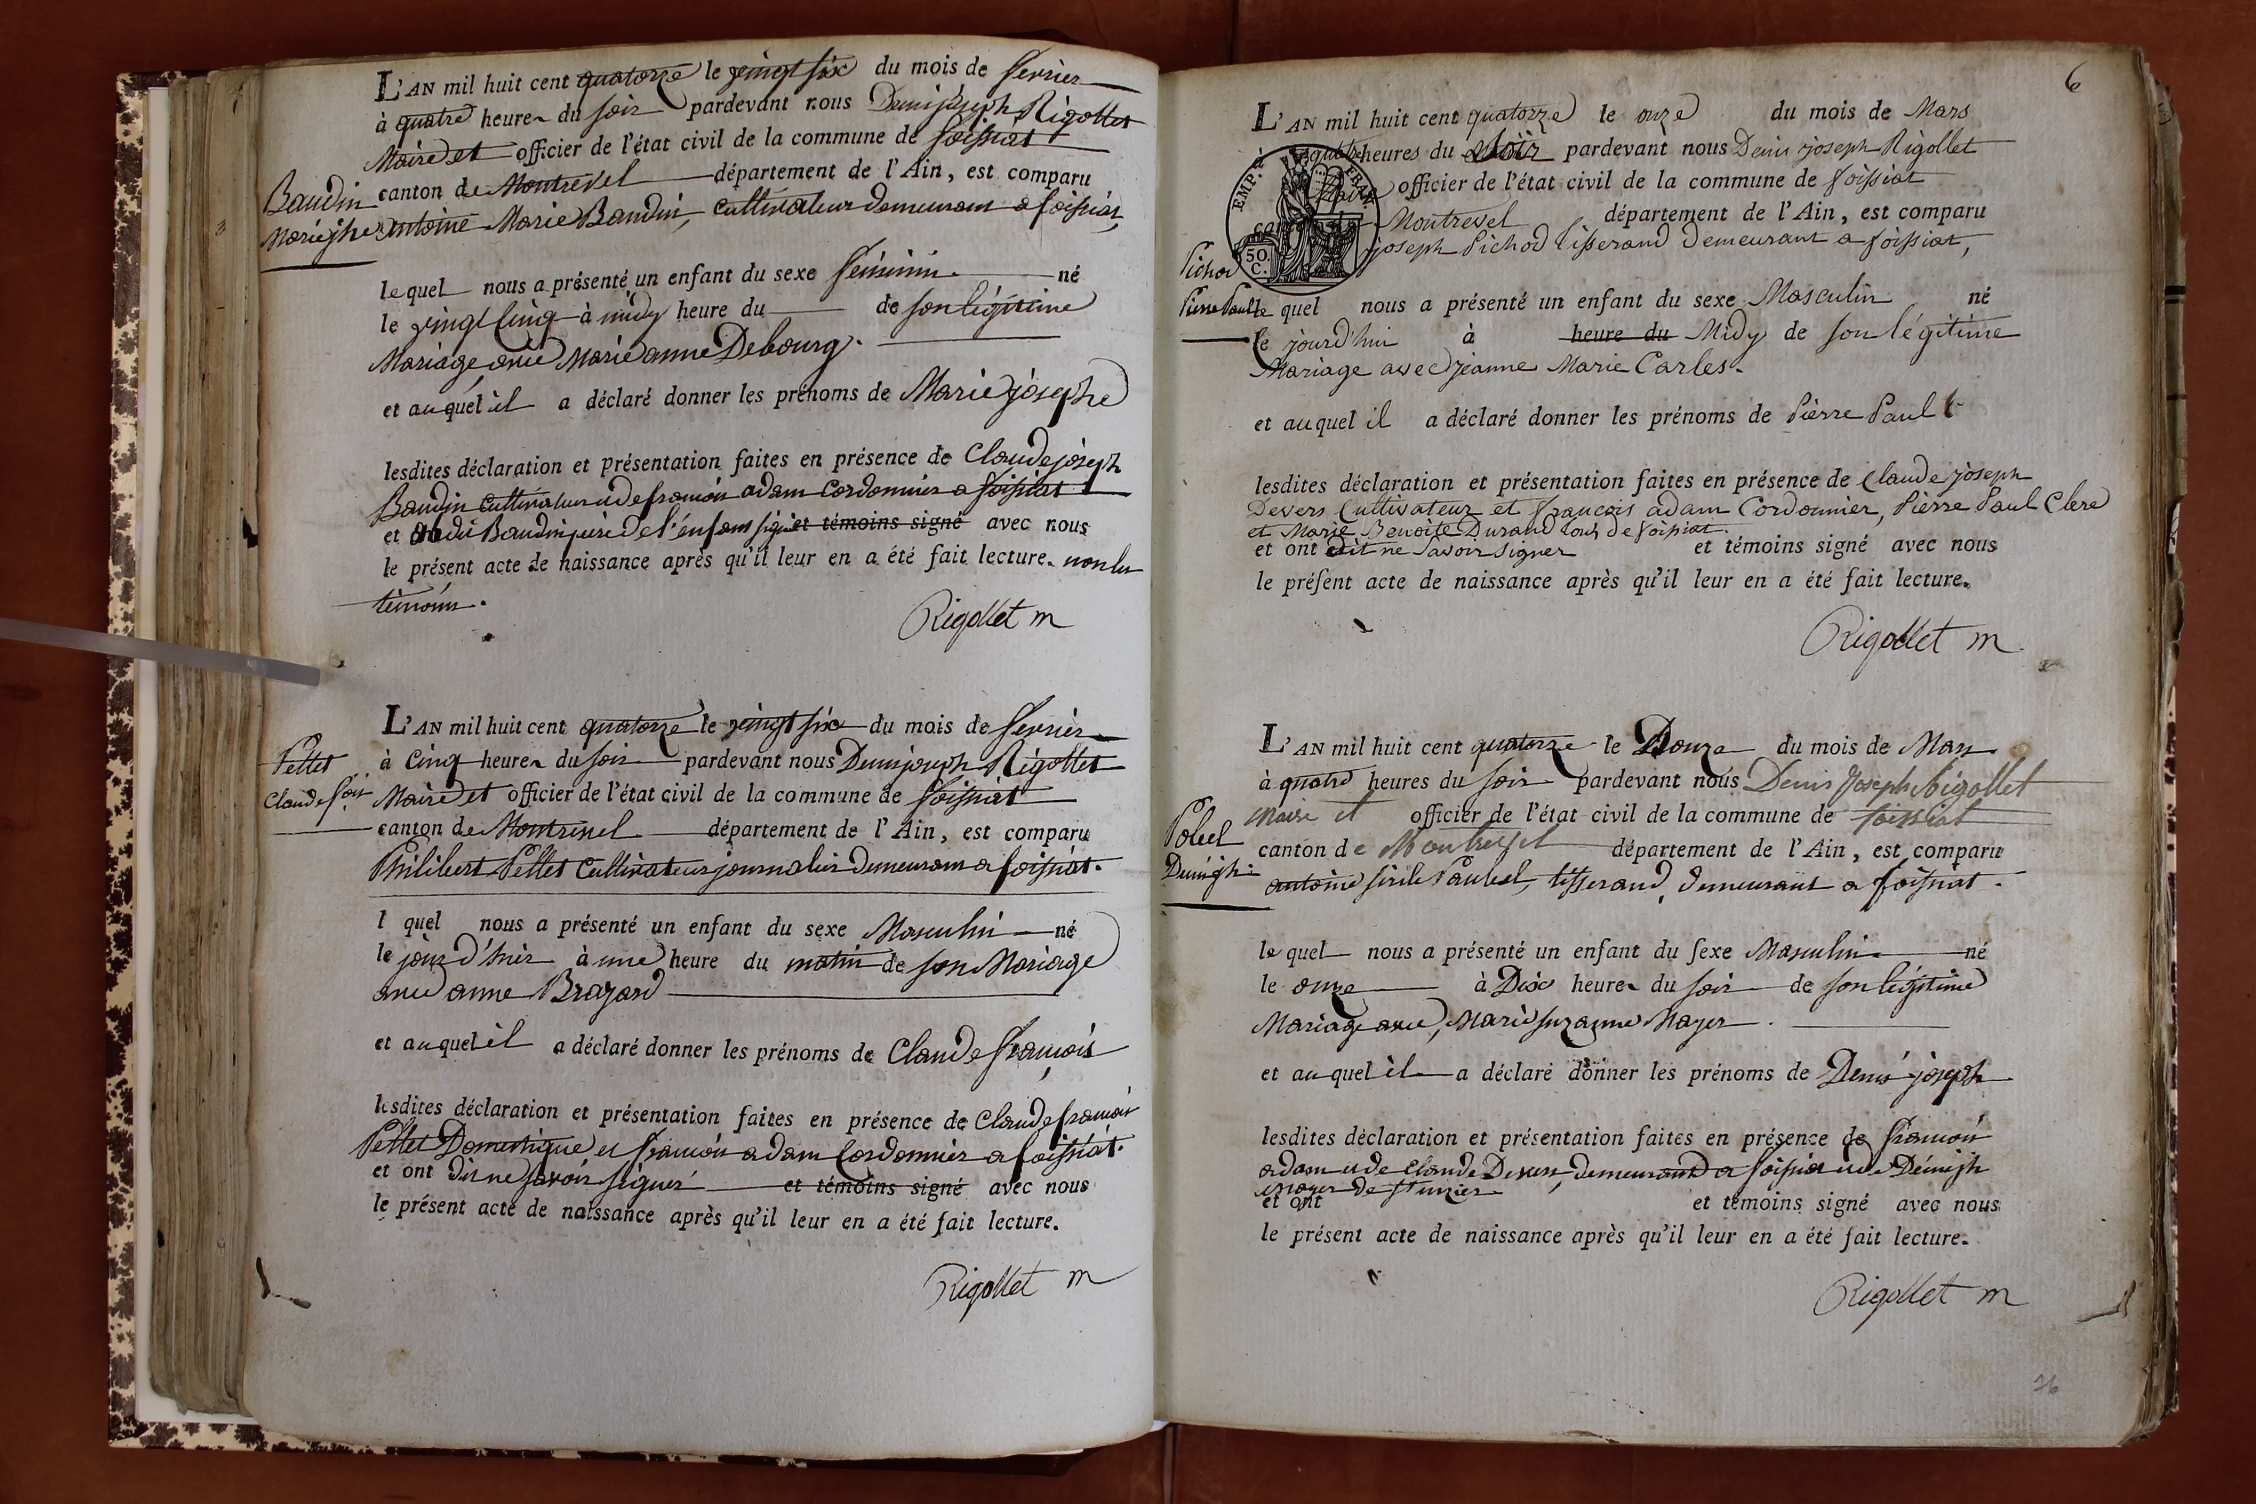 L'AN mil huit cent quatorze le vingt six du mois de fevrier
à quatre heures du soir pardevant nous Denis joseph Rigollet
Maire et officier de l'état civil de la commune de foissiat
canton de Montrevel département de l'Ain, est comparu
Baudin
Marie jhe
antoine Marie Baudin, cultivateur demeurant a foissiat,
lequel nous a présenté un enfant du sexe feminin né
le vingt cinq à midy heure du de son légitime
Mariage avec Marie anne Debourg.
et auquel il a déclaré donner les prénoms de Marie josephe
lesdites déclaration et présentation faites en présence de Claude joseph
Baudin cultivateur et de francois adam Cordonnier a foissiat
et ledit Baudin pere de l'enfant signé et témoins signé avec nous
le présent acte de naissance après qu'il leur en a été fait lecture. non les
témoins.
Rigollet m
L'AN mil huit cent quatorze le vingt six du mois de fevrier
Pellet
Claude fois
à Cinq heures du soir pardevant nous Denis joseph Rigollet
Maire et officier de l'état civil de la commune de foissiat
canton de Montrevel département de l'Ain, est comparu
Philibert Pellet Cultivateur journalier demeurant a foissiat.
l quel nous a présenté un enfant du sexe Masculin né
le jour d'hier à une heure du matin de son Mariage
avec anne Brazard
et auquel il a déclaré donner les prénoms de Claude François
lesdites déclaration et présentation faites en présence de Claude francois
Pellet Domestique et francois adam Cordonnier a foissiat.
et ont dit ne savoir signer et témoins signé avec nous
le présent acte de naissance après qu'il leur en a été fait lecture.
Rigollet m
6
L'AN mil huit cent quatorze le onze du mois de Mars
à quatre heures du soir pardevant nous Denis joseph Rigollet
Maire officier de l'état civil de la commune de foissiat
canton de Montrevel département de l'Ain, est comparu
EMP. FRA.
50 C.
joseph Pichod tisserand demeurant a foissiat,
Pichod
Pierre Paul
le quel nous a présenté un enfant du sexe Masculin né
le jourd'hui à heure du Midy de son légitime
Mariage avec jeanne Marie Carles.
et auquel il a déclaré donner les prénoms de Pierre Paul
lesdites déclaration et présentation faites en présence de Claude joseph
Devers Cultivateur et francois adam Cordonnier, Pierre Paul Clere
et Marie Benoite Durand tous de foissiat.
et ont dit ne savoir signer et témoins signé avec nous
le présent acte de naissance après qu'il leur en a été fait lecture.
Rigollet m
L'AN mil huit cent quatorze le Douze du mois de Mars
à quatre heures du soir pardevant nous Denis Joseph Rigollet
maire et officier de l'état civil de la commune de foissiat
Pobel
Denis jh
canton de Montrevel département de l'Ain, est comparu
antoine tisserand, demeurant a foissiat.
le quel nous a présenté un enfant du sexe Masculin né
le onze à Dix heures du soir de son légitime
Mariage avec Marie suzanne Mayer.
et auquel il a déclaré donner les prénoms de Denis joseph
lesdites déclaration et présentation faites en présence de francois
adam et de Claude Devers, demeurant a foissiat et de Denis jh
mayer de
et ont et témoins signé avec nous
le présent acte de naissance après qu'il leur en a été fait lecture.
Rigollet m